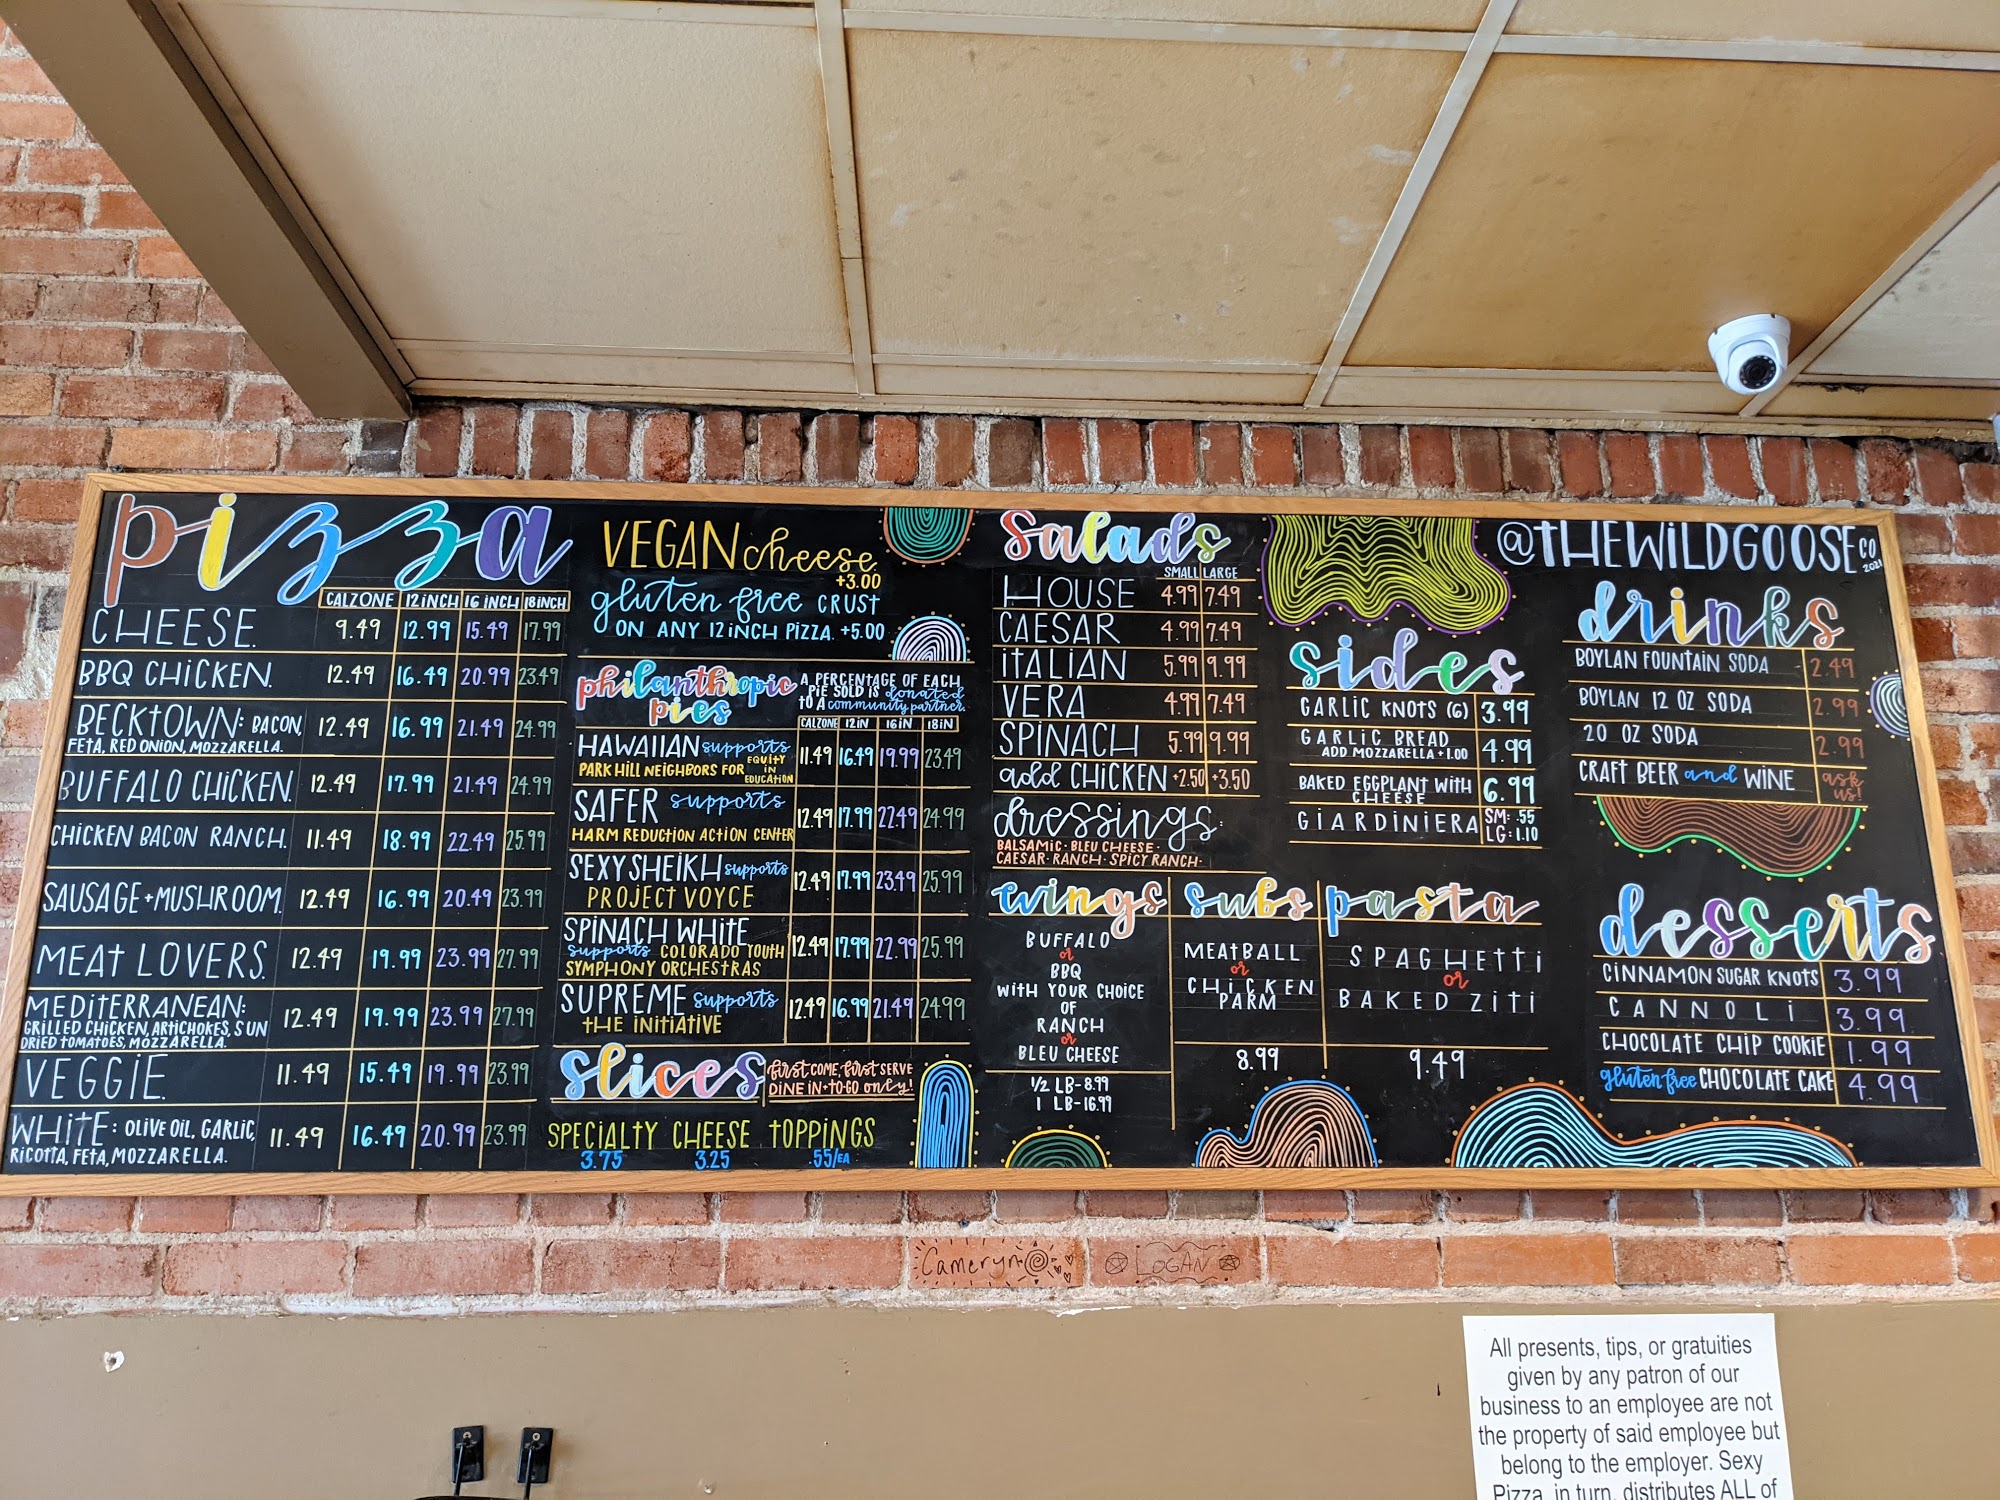 pizza
CALZONE 12 inch 16 inch 18 inch
CHEESE. 9.49 12.99 15.49 17.99
BBQ CHICKEN. 12.49 16.49 20.99 23.49
BECKTOWN: BACON, 12.49 16.99 21.49 24.99
FETA, RED ONION, MOZZARELLA.
BUFFALO CHICKEN. 12.49 17.99 21.49 24.99
CHICKEN BACON RANCH. 11.49 18.99 22.49 25.99
SAUSAGE + MUSHROOM. 12.49 16.99 20.49 23.99
MEAT LOVERS. 12.49 19.99 23.99 27.99
MEDITERRANEAN: 12.49 19.99 23.99 27.99
GRILLED CHICKEN, ARTICHOKES, SUN
DRIED TOMATOES, MOZZARELLA.
VEGGIE. 11.49 15.49 19.99 23.99
WHITE: OLIVE OIL, GARLIC, 11.49 16.49 20.99 23.99
RICOTTA, FETA, MOZZARELLA.
VEGAN cheese
+3.00
gluten free CRUST
ON ANY 12 INCH PIZZA. +5.00
philanthropic pies
A PERCENTAGE OF EACH
PIE SOLD IS donated
TO A community partner.
CALZONE 12IN 16IN 18IN
HAWAIIAN supports 11.49 16.49 19.99 23.49
PARK HILL NEIGHBORS FOR EQUITY IN EDUCATION
SAFER supports 12.49 17.99 22.49 24.99
HARM REDUCTION ACTION CENTER
SEXY SHEIKH supports 12.49 17.99 23.49 25.99
PROJECT VOYCE
SPINACH WHITE 12.49 17.99 22.99 25.99
supports COLORADO YOUTH
SYMPHONY ORCHESTRAS
SUPREME supports 12.49 16.99 21.49 24.99
THE INITIATIVE
slices first come, first serve
DINE IN + TO GO only!
SPECIALTY CHEESE TOPPINGS
3.75 3.25 .55/EA
salads
SMALL LARGE
HOUSE 4.99 7.49
CAESAR 4.99 7.49
ITALIAN 5.99 9.99
VERA 4.99 7.49
SPINACH 5.99 9.99
add CHICKEN +2.50 +3.50
dressings:
BALSAMIC · BLEU CHEESE ·
CAESAR · RANCH · SPICY RANCH ·
wings
BUFFALO
or
BBQ
WITH YOUR CHOICE
OF
RANCH
or
BLEU CHEESE
1/2 LB - 8.99
1 LB - 16.99
subs
MEATBALL
or
CHICKEN
PARM
8.99
pasta
SPAGHETTI
or
BAKED ZITI
9.49
sides
GARLIC KNOTS (6) 3.99
GARLIC BREAD 4.99
ADD MOZZARELLA +1.00
BAKED EGGPLANT WITH 6.99
CHEESE
GIARDINIERA SM: .55
LG: 1.10
@THEWILDGOOSE CO.
2021
drinks
BOYLAN FOUNTAIN SODA 2.49
BOYLAN 12 OZ SODA 2.99
20 OZ SODA 2.99
CRAFT BEER and WINE ask us!
desserts
CINNAMON SUGAR KNOTS 3.99
CANNOLI 3.99
CHOCOLATE CHIP COOKIE 1.99
gluten free CHOCOLATE CAKE 4.99
Cameryn
LOGAN
All presents, tips, or gratuities
given by any patron of our
business to an employee are not
the property of said employee but
belong to the employer. Sexy
Pizza, in turn, distributes ALL of